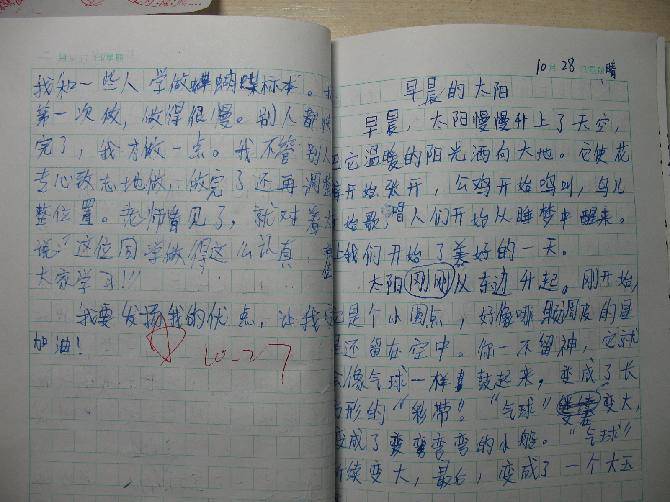 我和一些人学做蝴蝶标本。
第一次做，做得很慢。别人都快
完了，我才做一点。我不管别人
专心致志地做，做完了还再调整
整位置。老师看见了，就对着
说"这位同学做得这么认真，
大家学习!!!
我要发扬我的优点，让我
加油！
10-27
10月28 晴
早晨的太阳
早晨，太阳慢慢升上了天空，
把它温暖的阳光洒向大地。它使花
开始张开，公鸡开始鸣叫，鸟儿
始歌唱，人们开始从睡梦中醒来。
上我们开始了美好的一天。
太阳刚刚从东边升起。刚开始，
是个小圆点，好像哪颗调皮的星
星还留在空中。你一不留神，它就
像气球一样鼓起来，变成了长
方形的"彩带"。"气球"继续变大，
变成了弯弯的小船。"气球"
继续变大，最后，变成了一个大五